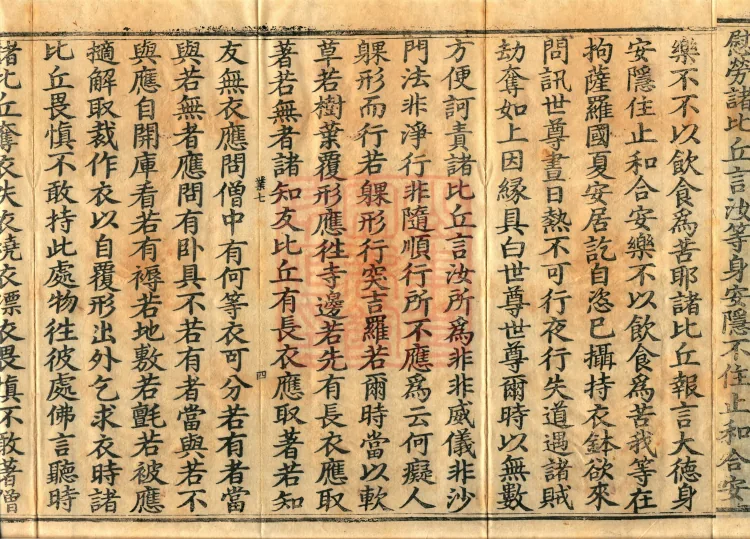 慰勞諸比丘言汝等身安隱不住止和合安
樂不不以飲食爲苦耶諸比丘報言大德身
安隱住止和合安樂不以飲食爲苦我等在
拘薩羅國夏安居訖自恣已攝持衣鉢欲來
問訊世尊晝日熱不可行夜行失道遇諸賊
劫奪如上因緣具白世尊世尊爾時以無數
方便訶責諸比丘言汝所爲非非威儀非沙
門法非淨行非隨順行所不應爲云何癡人
躶形而行若躶形行突吉羅若爾時當以軟
草若樹葉覆形應往寺邊若先有長衣應取
著若無者諸知友比丘有長衣應取著若知
業七
四
友無衣應問僧中有何等衣可分若有者當
與若無者應問有卧具不若有者當與若不
與應自開庫看若有褥若地敷若氈若被應
擿解取裁作衣以自覆形出外乞求衣時諸
比丘畏慎不敢持此處物往彼處佛言聽時
諸比丘奪衣失衣燒衣漂衣畏慎不敢著僧